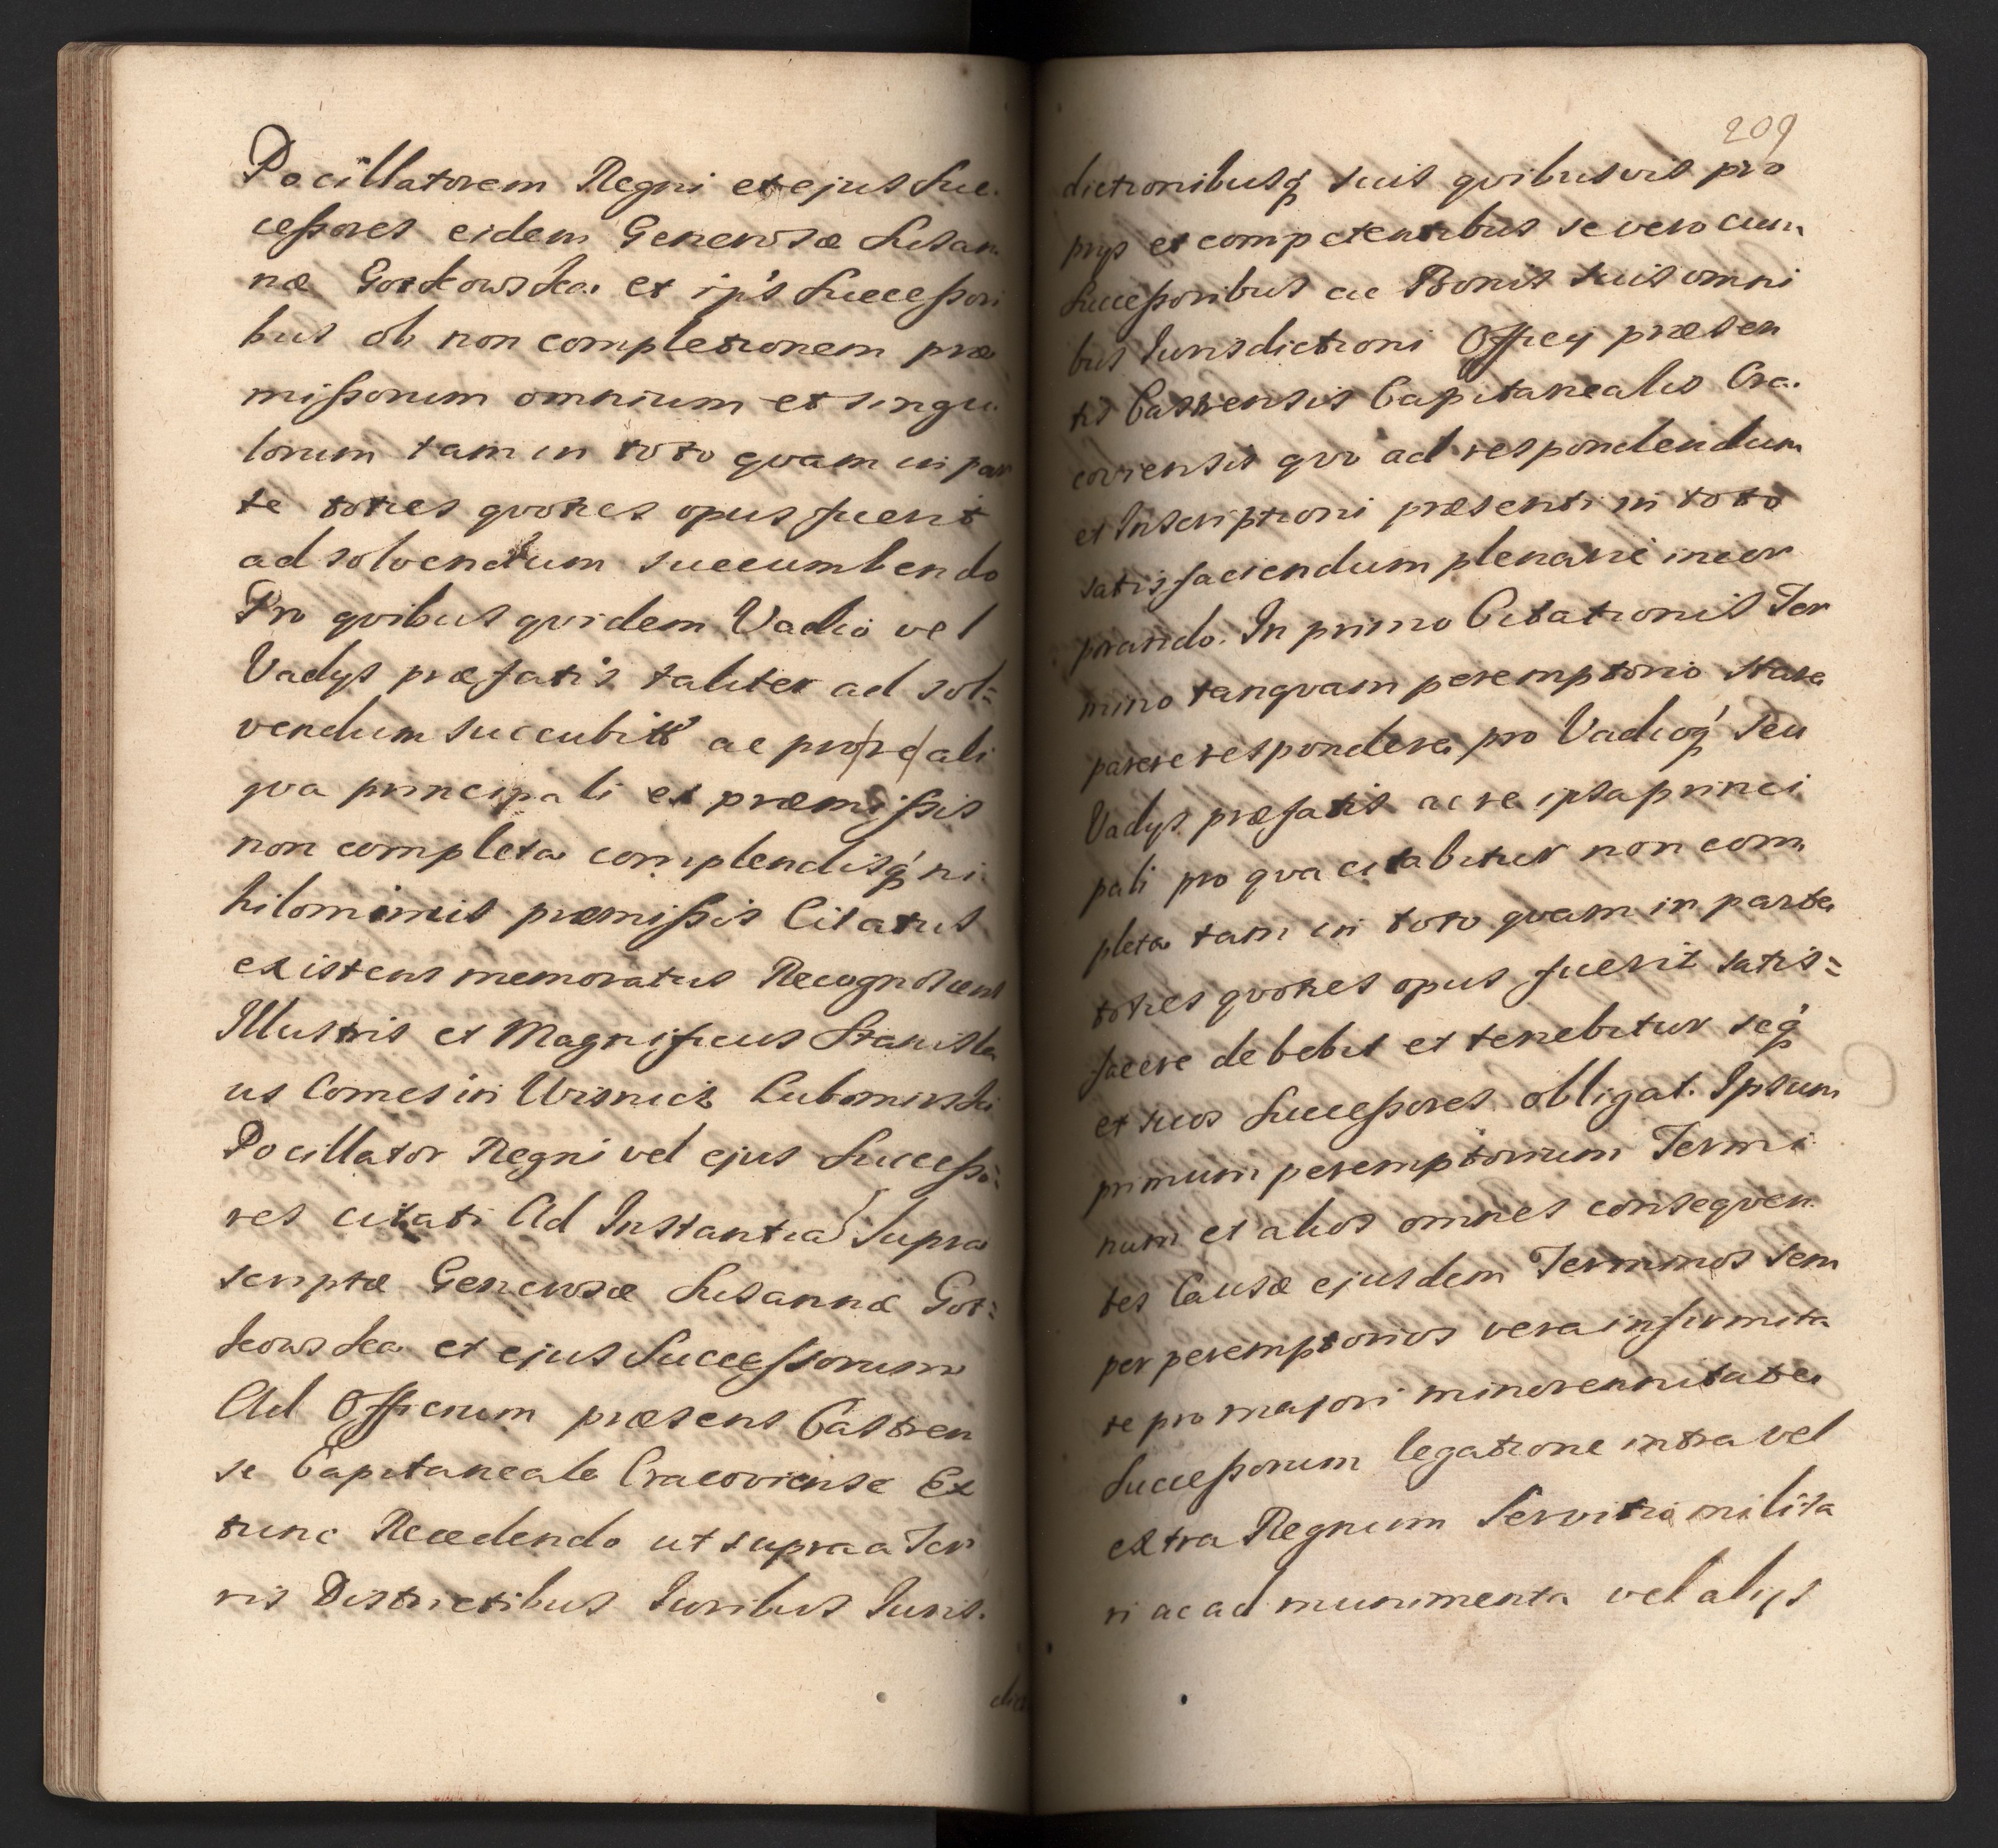 Pocillatorem Regni et ejus Suc.
cessores eidem Generosæ Susan
næ Gorkowska et ips Successori
bus ob non completionem præ
missorum omnium et singu.
lorum tam in toto qvam in par
te toties qvoties opus fuerit
ad solvendum succumbendo
Pro qvibus qvidem Vadio vel
Vadys præfatis taliter ad sol=
vendum succubitis ac pro re ali
qva principali et præmissis
non completa complendisq́ ni.
hilominus præmissis Citatus
existens memoratus Recognoscens
Illustris et Magnificus Stanisla
us Comes in Wisnicz Lubomirski
Pocillator Regni vel ejus Successo=
res citati Ad Instantia Supra
scriptæ Generosæ Susannæ Gor=
kowska et ejus Successorum
Ad Officium præsens Castren
se Capitaneale Cracoviense Ex
tunc Recedendo ut supra a Ter
ris Districtibus Juribus Juris.
dict
209
dictionibusq́ suis qvibusvis pro
prys et competentibus se vero cum
Successoribus ac Bonis suis omni
bus Jurisdictioni Officy præsen
tis Castrensis Capitanealis Cra.
coviensis qvo ad respondendum
et Inscriptioni præsenti in toto
satisfaciendum plenarie incor
porando. In primo Citationis Ter
mino tanqvam peremptorio stare
parere respondere pro Vadioq́ seu
Vadys præfatis ac re ipsa princi
pali pro qva citabitur non com
pleta tam in toto qvam in parte
toties qvoties opus fuerit satis=
facere debebit et tenebitur seq́
et suos Successores obligat. Ipsum
primum peremptorium Termi
num et alios omnes conseqven
tes Causæ ejusdem Terminos sem
per peremptorios vera infirmita
te pro majori minorennitate
Successorum legatione intra vel
extra Regnum Servitio milita
ri ac ad munimenta vel alijs